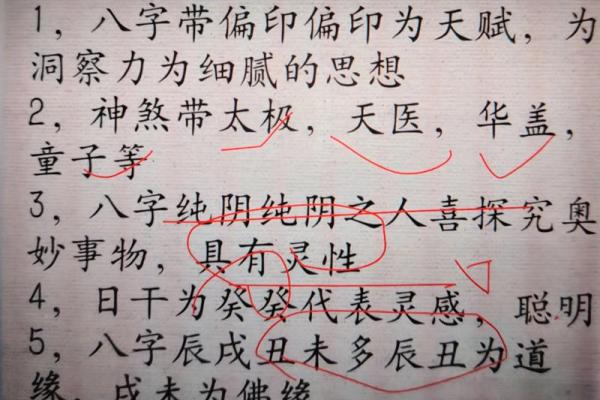 1，八字带偏印偏印为天赋，为
洞察力为细腻的思想
2，神煞带太极，天医，华盖，
童子等
3，八字纯阴纯阴之人喜探究奥
妙事物，具有灵性
4，日干为癸癸代表灵感，聪明
5，八字辰戌丑未多辰丑为道
缘，戌未为佛缘